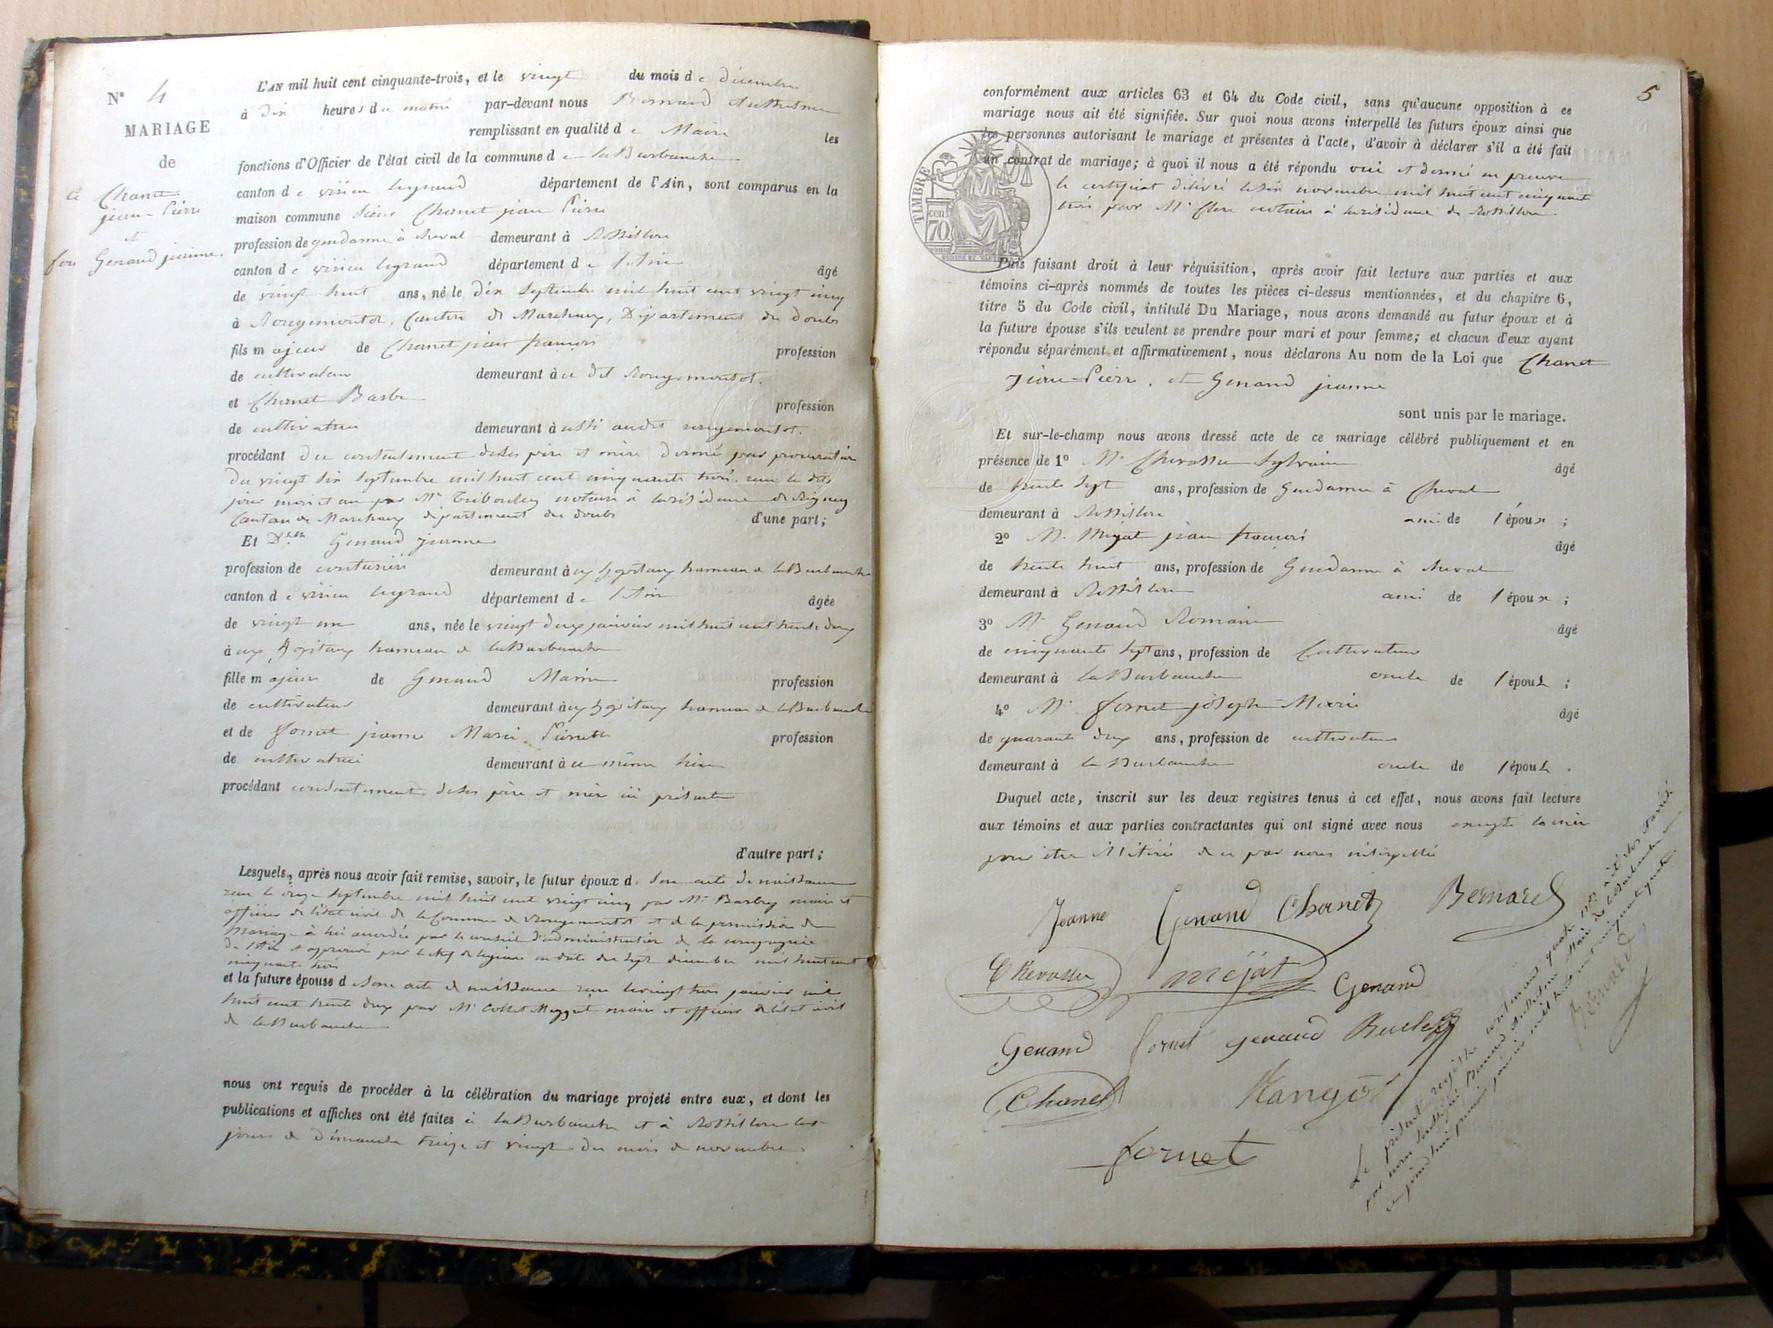 N° 4
MARIAGE
de
Chanet
jean-Pierre
et
Genand jeanne
L'AN mil huit cent cinquante-trois, et le vingt du mois de décembre
à dix heures du matin par-devant nous Bernard Anthelme
remplissant en qualité de Maire les
fonctions d'Officier de l'état civil de la commune de la Burbanche
canton de virieu legrand département de l'Ain, sont comparus en la
maison commune Sieur Chanet jean Pierre
profession de gendarme à cheval demeurant à Rossillon
canton de virieu legrand département de l'Ain âgé
de vingt huit ans, né le dix Septembre mil huit cent vingt cinq
à Rougemontot, Canton de Marchaux, Département du Doubs
fils majeur de Chanet jean françois profession
de cultivateur demeurant à ce dit Rougemontot.
et Chanet Barbe profession
de cultivatrice demeurant à aussi audit rougemontot.
procédant du consentement de ses père et mère donné par procuration
du vingt six Septembre mil huit cent cinquante trois, reçue le dit
jour mois et an par Mr Tribouley notaire à la résidence de Rigney
Canton de Marchaux département du doubs d'une part;
Et Dlle Genand jeanne
profession de couturière demeurant à aux hopitaux hameau de la Burbanche
canton de virieu legrand département de l'Ain âgée
de vingt un ans, née le vingt deux janvier mil huit cent trente deux
à aux hopitaux hameau de la Burbanche
fille majeure de Genand Marin profession
de cultivateur demeurant à aux hopitaux hameau de la Burbanche
et de fornet jeanne Marie Pierrette profession
de cultivatrice demeurant à ce même lieu
procédant consentement de ses père et mère ici présents
d'autre part;
Lesquels, après nous avoir fait remise, savoir, le futur époux de Son acte de naissance
reçu le onze Septembre mil huit cent vingt cinq par Mr Barbey maire et
officier de l'état civil de la Commune de Rougemontot et de la permission de
Mariage à lui accordée par le conseil d'administration de la compagnie
de l'Ain et approuvé par le chef de légion en date du sept décembre mil huit cent
cinquante trois
et la future épouse de Son acte de naissance reçu le vingt trois janvier mil
huit cent trente deux par Mr Collet Meygret maire et officier de l'état civil
de la Burbanche
nous ont requis de procéder à la célébration du mariage projeté entre eux, et dont les
publications et affiches ont été faites à la Burbanche et à Rossillon les
jours de Dimanche treize et vingt du mois de novembre.
5
conformément aux articles 63 et 64 du Code civil, sans qu'aucune opposition à ce
mariage nous ait été signifiée. Sur quoi nous avons interpellé les futurs époux ainsi que
les personnes autorisant le mariage et présentes à l'acte, d'avoir à déclarer s'il a été fait
un contrat de mariage; à quoi il nous a été répondu oui et donné en preuve
le certificat délivré le six novembre mil huit cent cinquante
trois par Mr notaire à la résidence de Rossillon.
TIMBRE
70
cen
Puis faisant droit à leur réquisition, après avoir fait lecture aux parties et aux
témoins ci-après nommés de toutes les pièces ci-dessus mentionnées, et du chapitre 6,
titre 5 du Code civil, intitulé Du Mariage, nous avons demandé au futur époux et à
la future épouse s'ils veulent se prendre pour mari et pour femme; et chacun d'eux ayant
répondu séparément et affirmativement, nous déclarons Au nom de la Loi que Chanet
jean-Pierre, et Genand jeanne
sont unis par le mariage.
Et sur-le-champ nous avons dressé acte de ce mariage célébré publiquement et en
présence de 1° Mr Chevassu Sylvain âgé
de trente sept ans, profession de Gendarme à Cheval
demeurant à Rossillon ami de l'époux;
2° Mr Méjat jean françois âgé
de trente huit ans, profession de Gendarme à cheval
demeurant à Rossillon ami de l'époux;
3° Mr Genand Romain âgé
de cinquante sept ans, profession de Cultivateur
demeurant à la Burbanche oncle de l'épouse;
4° Mr fornet joseph-Marie âgé
de quarante deux ans, profession de cultivateur
demeurant à la Burbanche oncle de l'épouse.
Duquel acte, inscrit sur les deux registres tenus à cet effet, nous avons fait lecture
aux témoins et aux parties contractantes qui ont signé avec nous excepté la mère
pour être illitérée de ce par nous interpellée
Jeanne Genand Chanet Bernard
Chevassu mejat Genand
Genand fornet genand
Chanet
fornet
Le présent registre contenant quatre a été clos et arrêté
par nous soussigné Bernard Anthelme Maire de la Burbanche
ce jourd'hui premier janvier mil huit cent cinquante quatre.
Bernard